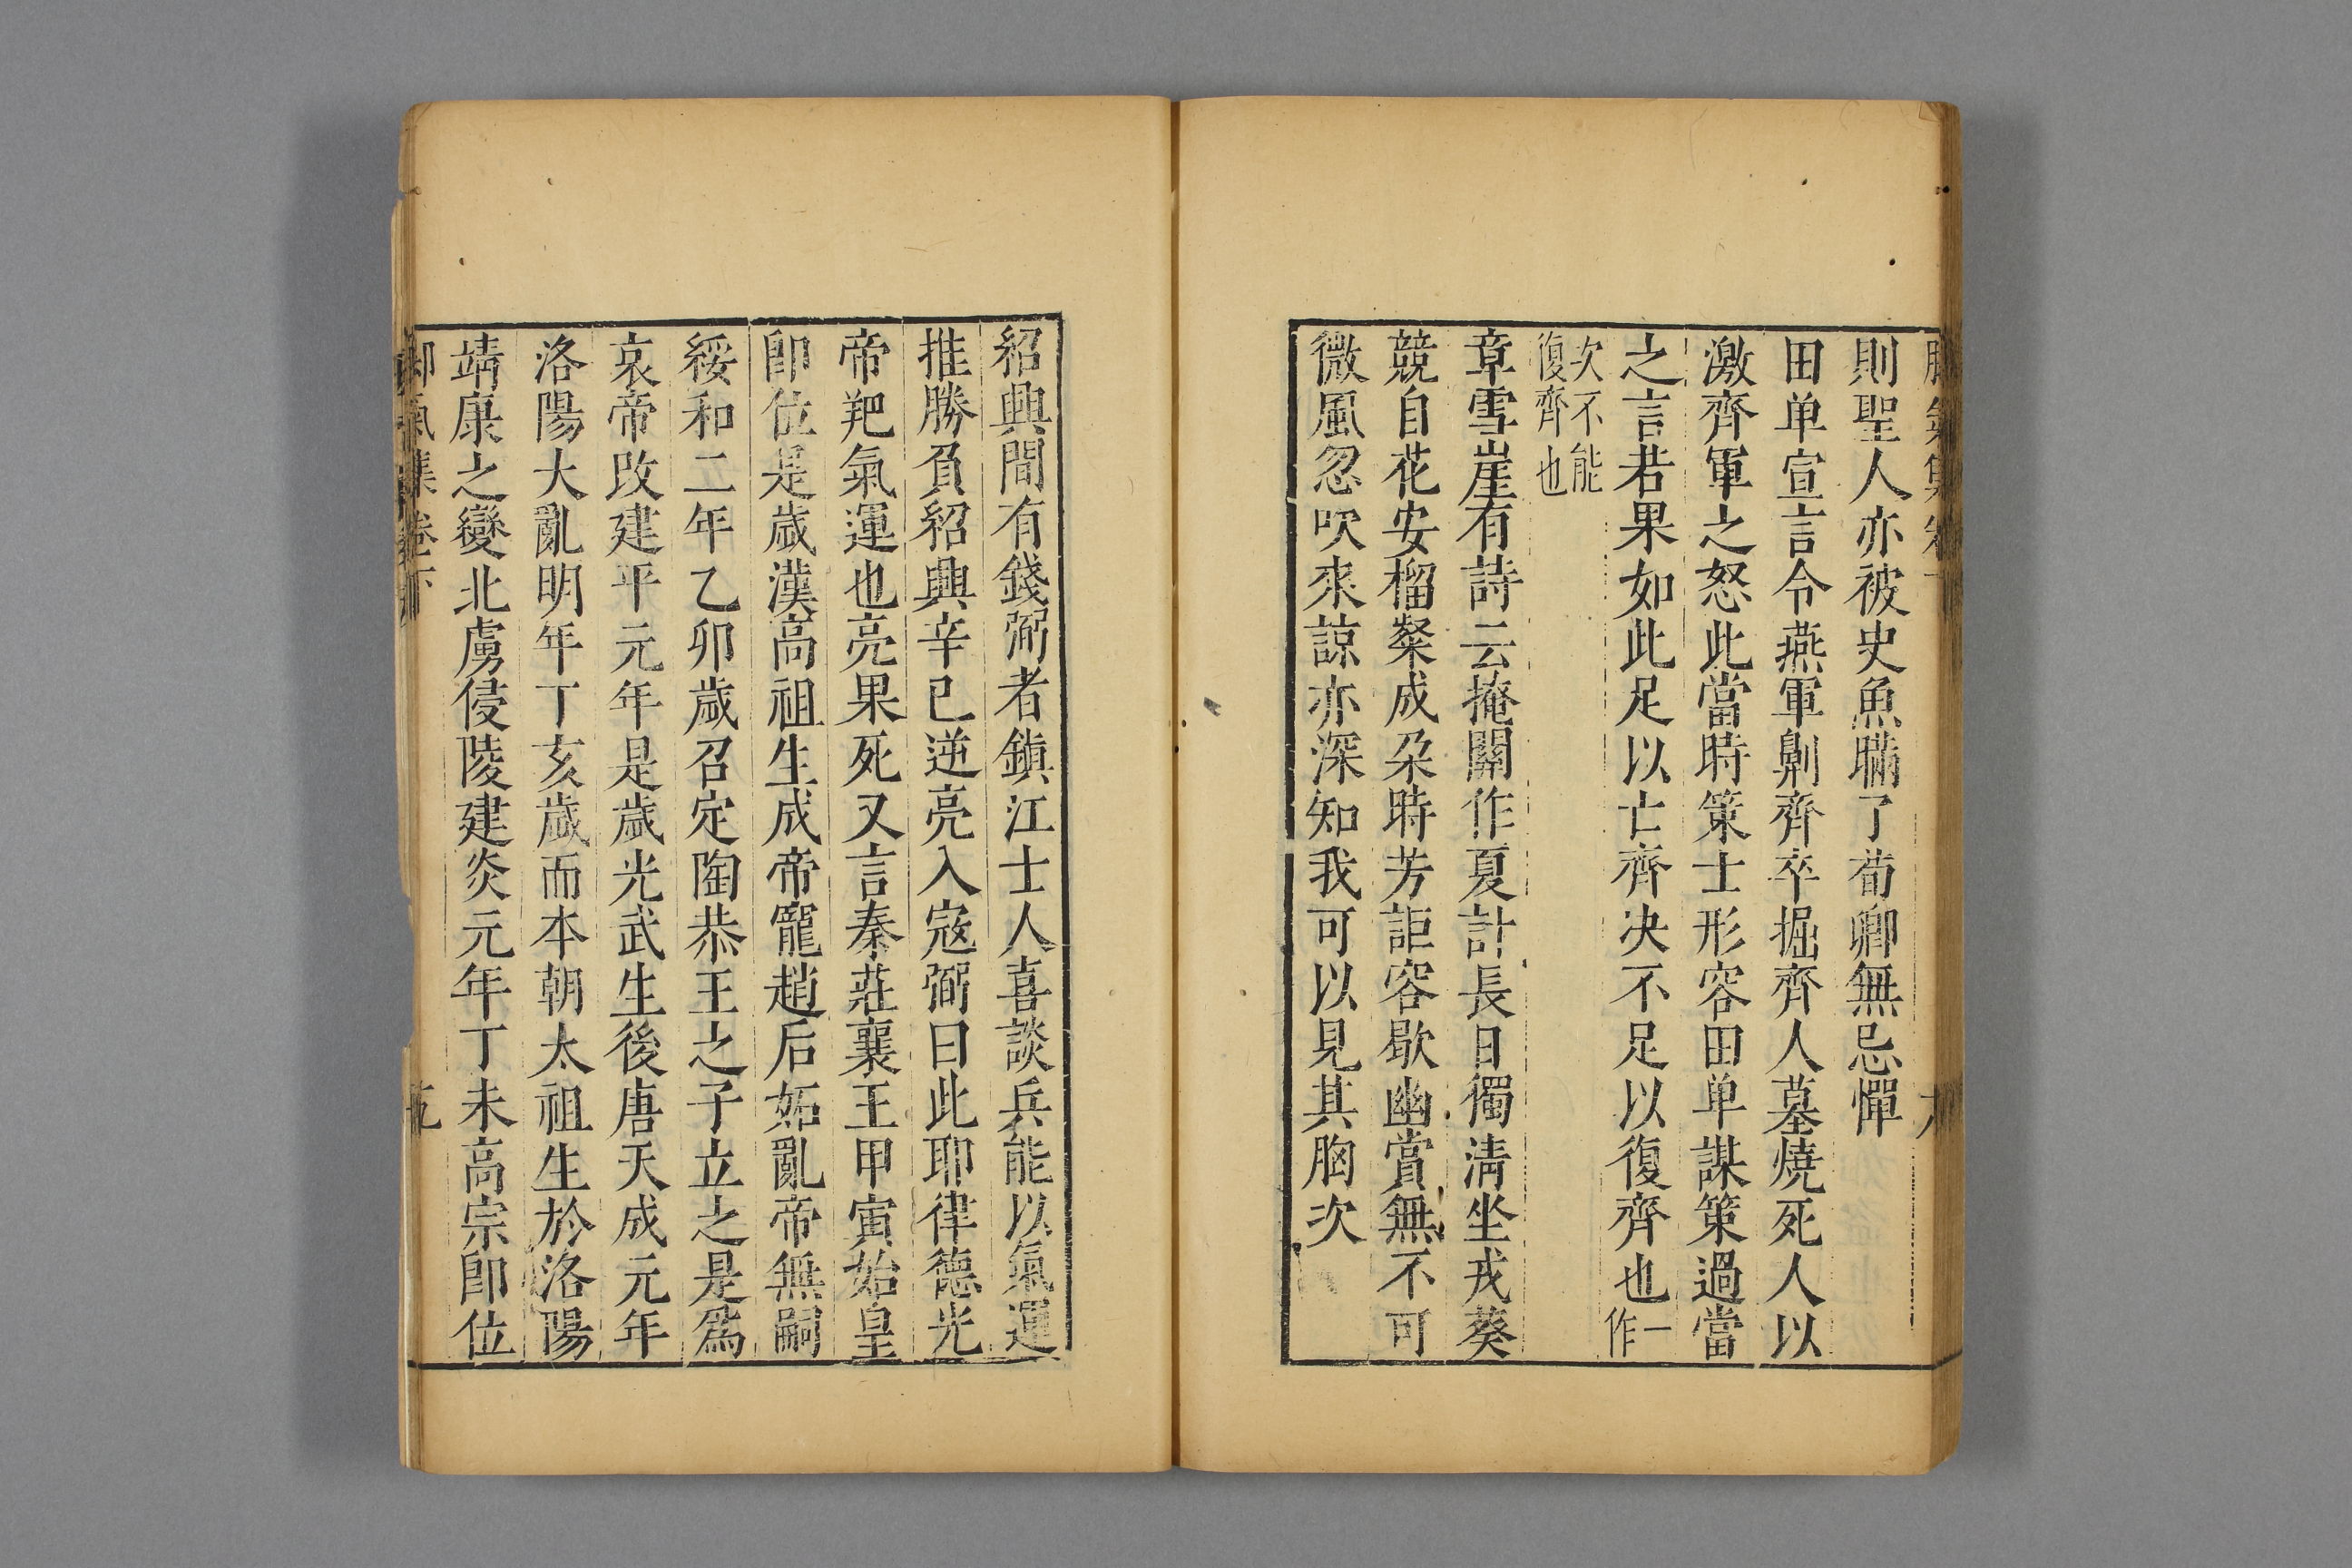 則聖人亦被史魚瞞了荀卿無忌憚
田单宣言令燕軍劓齊卒掘齊人墓燒死人以
激齊軍之怒此當時策士形容田单謀策過當
之言若果如此足以亡齊决不足以復齊也一作
次不能
復齊也
章雪崖有詩云掩關作夏計長日獨清坐戎葵
競自花安榴粲成朶時芳詎容歇幽賞無不可
微風忽吹來諒亦深知我可以見其胸次
紹興間有錢弼者鎮江士人喜談兵能以氣運
推勝負紹興辛巳逆亮入寇弼曰此耶律德光
帝羓氣運也亮果死又言秦莊襄王甲寅始皇
即位是歲漢高祖生成帝寵趙后妬亂帝無嗣
綏和二年乙卯歲召定陶恭王之子立之是爲
哀帝改建平元年是歲光武生後唐天成元年
洛陽大亂明年丁亥歲而本朝太祖生於洛陽
靖康之變北虜侵陵建炎元年丁未高宗即位